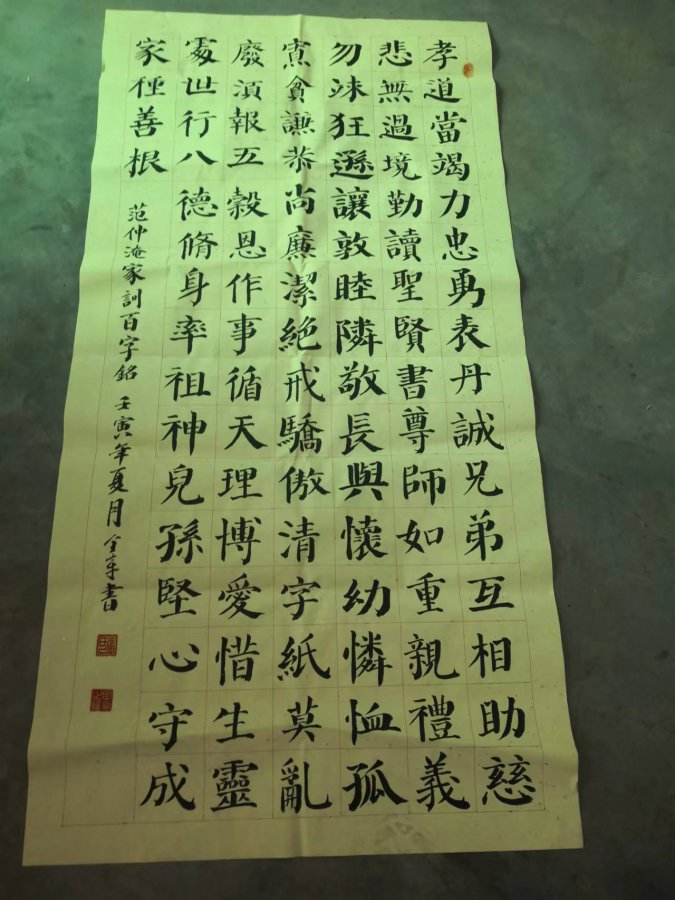 孝道當竭力忠勇表丹誠兄弟互相助慈
悲無過境勤讀聖賢書尊師如重親禮義
勿疎狂遜讓敦睦隣敬長與懷幼憐恤孤
寡貪謙恭尚廉潔絶戒驕傲清字紙莫亂
廢湏報五穀恩作事循天理博愛惜生靈
處世行八德脩身率祖神兒孫堅心守成
家種善根
范仲淹家訓百字銘 壬寅年夏月 書